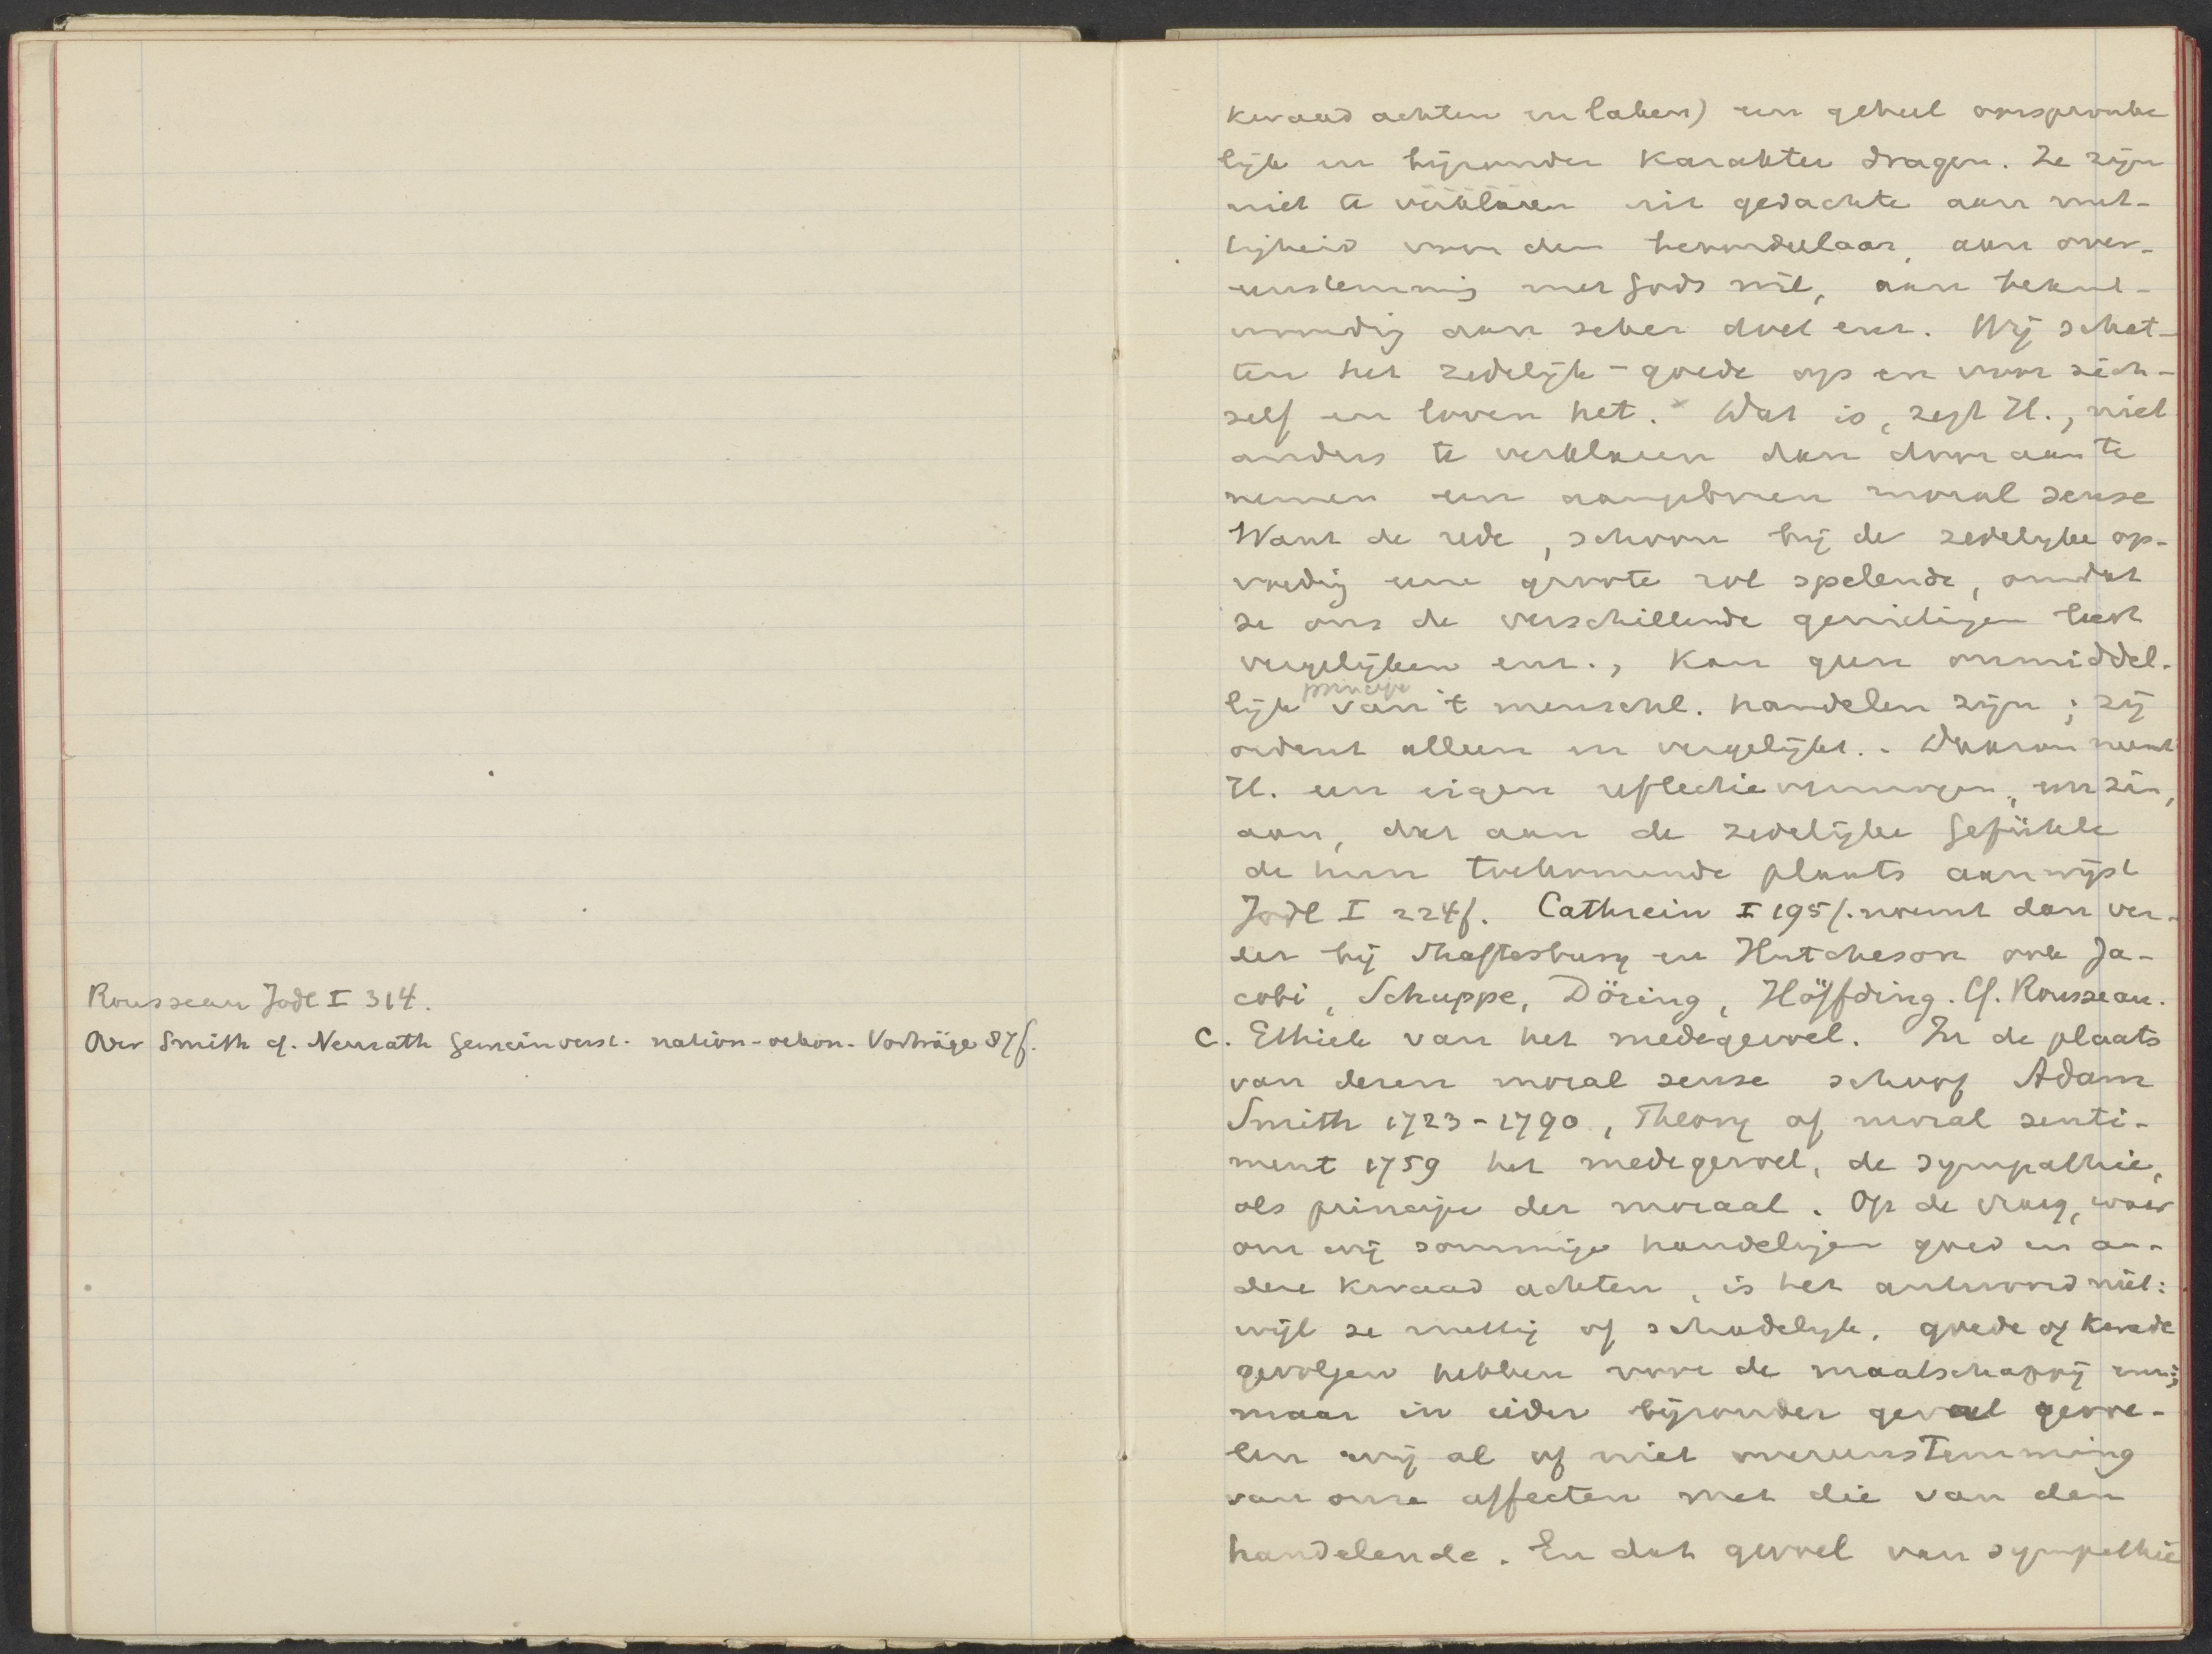 Rousseau Jodl I 314.
Over Smith cf. Neurath Gemeinverst. nation-oekon. Vorträge 87f.
kwaad achten en laken) een geheel oorspronke
lijk en bijzonder karakter dragen. Ze zijn
niet te verklaren uit gedachte aan nut-
tigheid voor den beoordeelaar, aan over-
eenstemming met Gods wil, aan beant-
woording aan zeker doel enz. Wij schat-
ten het zedelijk-goede op en voor zich-
zelf en loven het. Wat is, zegt H., niet
anders te verklaren dan door aan te
nemen een aangeboren moral sense
Want de rede, schoon bij de zedelijke op-
voeding eene groote rol spelende, omdat
ze ons de verschillende genietingen leert
vergelijken enz., kan geen onmiddel-
lijk principe van 't menschel. handelen zijn; zij
ordent alleen en vergelijkt. Daarom neemt
H. een eigen reflectievermogen, een zin,
aan, dat aan de zedelijke Gefühle
de hun toekomende plaats aanwijst
Jodl I 224f. Cathrein I 195f. noemt dan ver-
der bij Shaftesbury en Hutcheson ook Ja-
cobi, Schuppe, Döring, Höffding. Cf. Rousseau.
c. Ethiek van het medegevoel. In de plaats
van dezen moral sense schoof Adam
Smith 1723-1790, Theory of moral senti-
ment 1759 het medegevoel, de sympathie,
als principe der moraal. Op de vraag, waar
om wij sommige handelingen goed en an-
dere kwaad achten, is het antwoord niet:
wijl ze nuttig of schadelijk, goede of kwade
gevolgen hebben voor de maatschappij enz.;
maar in ieder bijzonder geval gevoe-
len wij al of niet overeenstemming
van onze affecten met die van den
handelende. En dat gevoel van sympathie